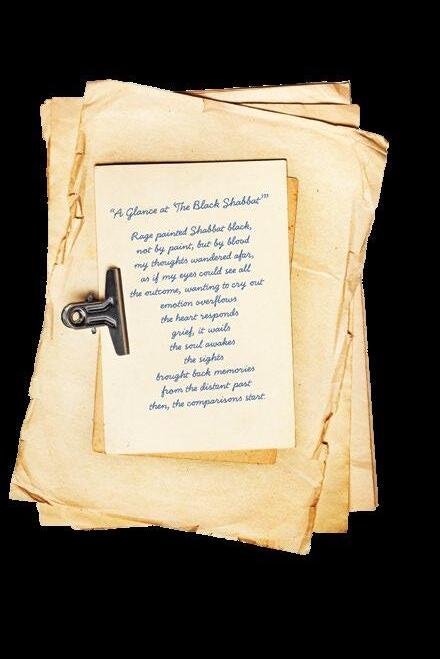 "A Glance at 'The Black Shabbat'"
Rage painted Shabbat black,
not by paint, but by blood
my thoughts wandered afar,
as if my eyes could see all
the outcome, wanting to cry out
emotion overflows
the heart responds
grief, it wails
the soul awakes
the sights
brought back memories
from the distant past
then, the comparisons start.